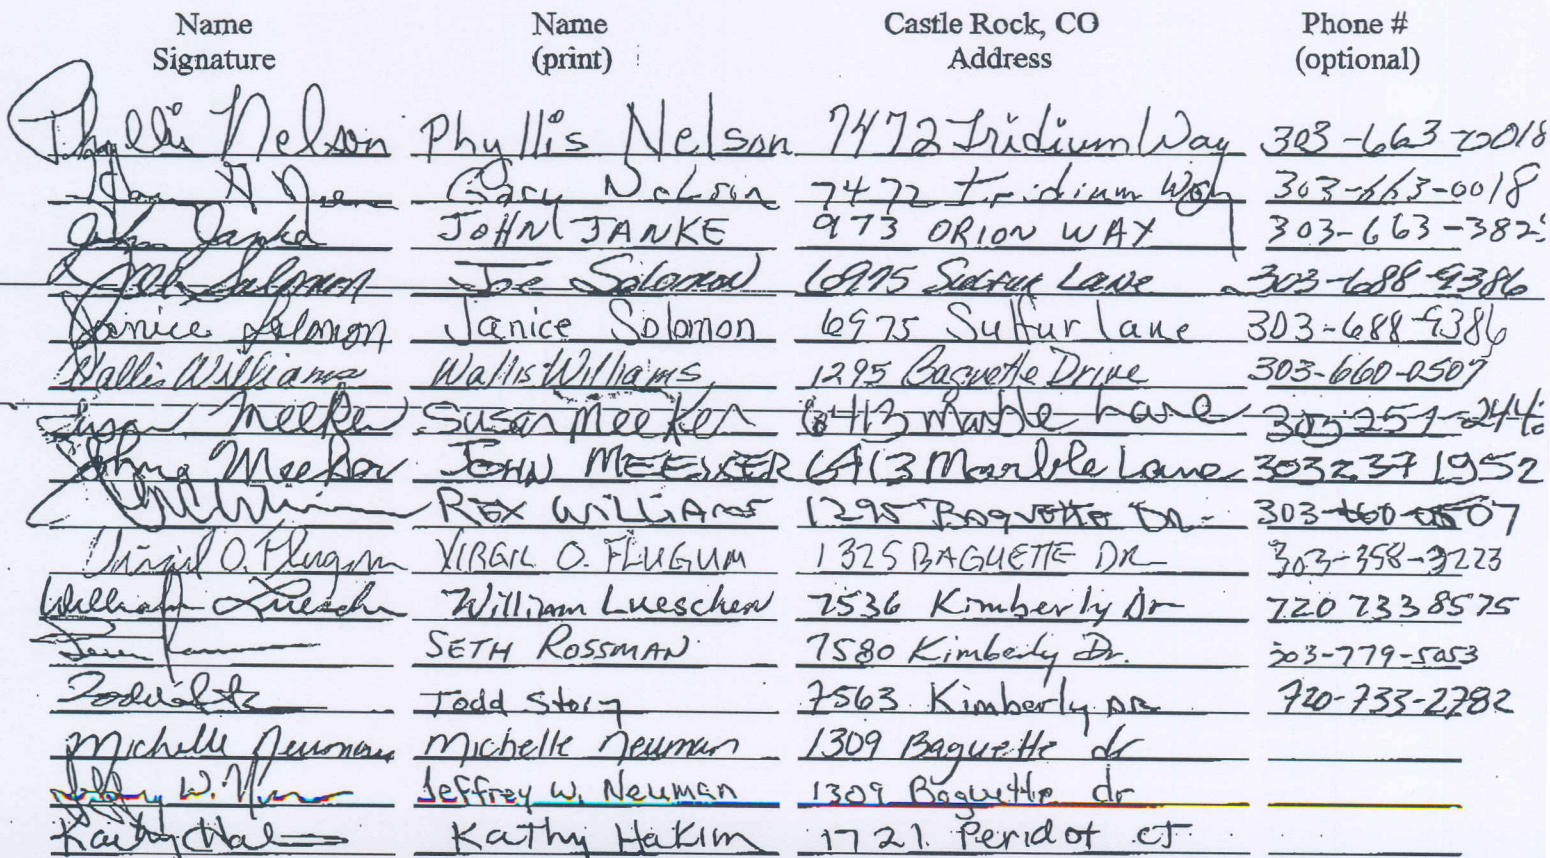 Name Name Castle Rock, CO Phone #
Signature (print) Address (optional)
Phyllis Nelson Phyllis Nelson 7472 Iridium Way 303-663-0018
Gary Nelson 7472 Iridium Way 303-663-0018
John Janke JOHN JANKE 973 ORION WAY 303-663-382
Joe Solomon Joe Solomon 6975 Sulfur Lane 303-688-9386
Janice Solomon Janice Solomon 6975 Sulfur Lane 303-688-9386
Wallis Williams Wallis Williams 1295 Baguette Drive 303-660-0507
Susan Meeker Susan Meeker 6413 Marble Lane 303-257-244
John Meeker JOHN MEEKER 6413 Marble Lane 303 237 1952
REX WILLIAMS 1295 BAQUETTE DR- 303-660-0507
Virgil O. Flugum VIRGIL O. FLUGUM 1325 BAGUETTE DR 303-358-3223
William Lueschen William Lueschen 7536 Kimberly Dr 720 733 8575
SETH ROSSMAN 7580 Kimberly Dr. 303-779-5053
Todd Story 7563 Kimberly DR 720-733-2782
Michelle Neuman Michelle Neuman 1309 Baguette dr
Jeffrey W. Neuman 1309 Baguette dr
Kathy Kathy Hakim 1721 Peridot ct